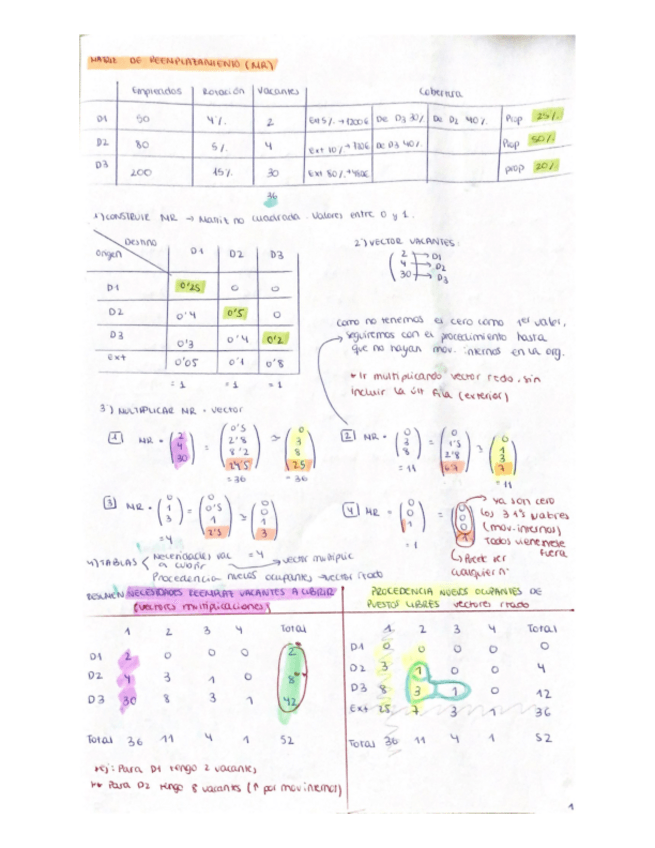 MATRIZ DE REEMPLAZAMIENTO (MR)
Empleados Rotación Vacantes Cobertura
D1 50 4% 2 Ext 5% → 1200€ De D3 30% De D2 40% Prop 25%
D2 80 5% 4 Ext 10% → De D3 40% Prop 50%
D3 200 15% 30 Ext 80% → prop 20%
36
1) CONSTRUIR MR → Matriz no cuadrada. Valores entre 0 y 1.
Destino
Origen D1 D2 D3
D1 0'25 0 0
D2 0'4 0'5 0
D3 0'3 0'4 0'2
Ext 0'05 0'1 0'8
= 1 = 1 = 1
2) VECTOR VACANTES:
2 → D1
4 → D2
30 → D3
Como no tenemos el cero como 1er valor,
seguiremos con el procedimiento hasta
que no hayan mov. internos en la org.
* Ir multiplicando vector rtdo, sin
incluir la últ fila (exterior)
3) MULTIPLICAR MR · vector
1 MR · (2 4 30) = (0'5 2'8 8'2 24'5) ≃ (0 3 8 25)
= 36 = 36
2 MR · (0 3 8) = (0 1'5 2'8 6'7) ≃ (0 1 3 7)
= 11 = 11
3 MR · (0 1 3) = (0 0'5 1 2'5) ≃ (0 0 1 3)
= 4 = 4
4 MR · (0 0 1) = (0 0 0 1)
= 1
→ Ya son cero
los 3 1ºs valores
(mov. internos)
Todos vienen de
fuera
↳ Puede ser
cualquier nº
4) TABLAS
Necesidades vac a cubrir → vector multiplic
Procedencia nuevos ocupantes → vector rtado
RESUMEN NECESIDADES REEMPLAZ VACANTES A CUBRIR
(vectores multiplicaciones)
1 2 3 4 Total
D1 2 0 0 0 2*
D2 4 3 1 0 8**
D3 30 8 3 1 42
Total 36 11 4 1 52
*Ej: Para D1 tengo 2 vacantes
** Para D2 tengo 8 vacantes (↑ por mov internos)
PROCEDENCIA NUEVOS OCUPANTES DE
PUESTOS LIBRES vectores rtado
1 2 3 4 Total
D1 0 0 0 0 0
D2 3 1 0 0 4
D3 8 3 1 0 12
Ext 25 7 3 1 36
Total 36 11 4 1 52
1